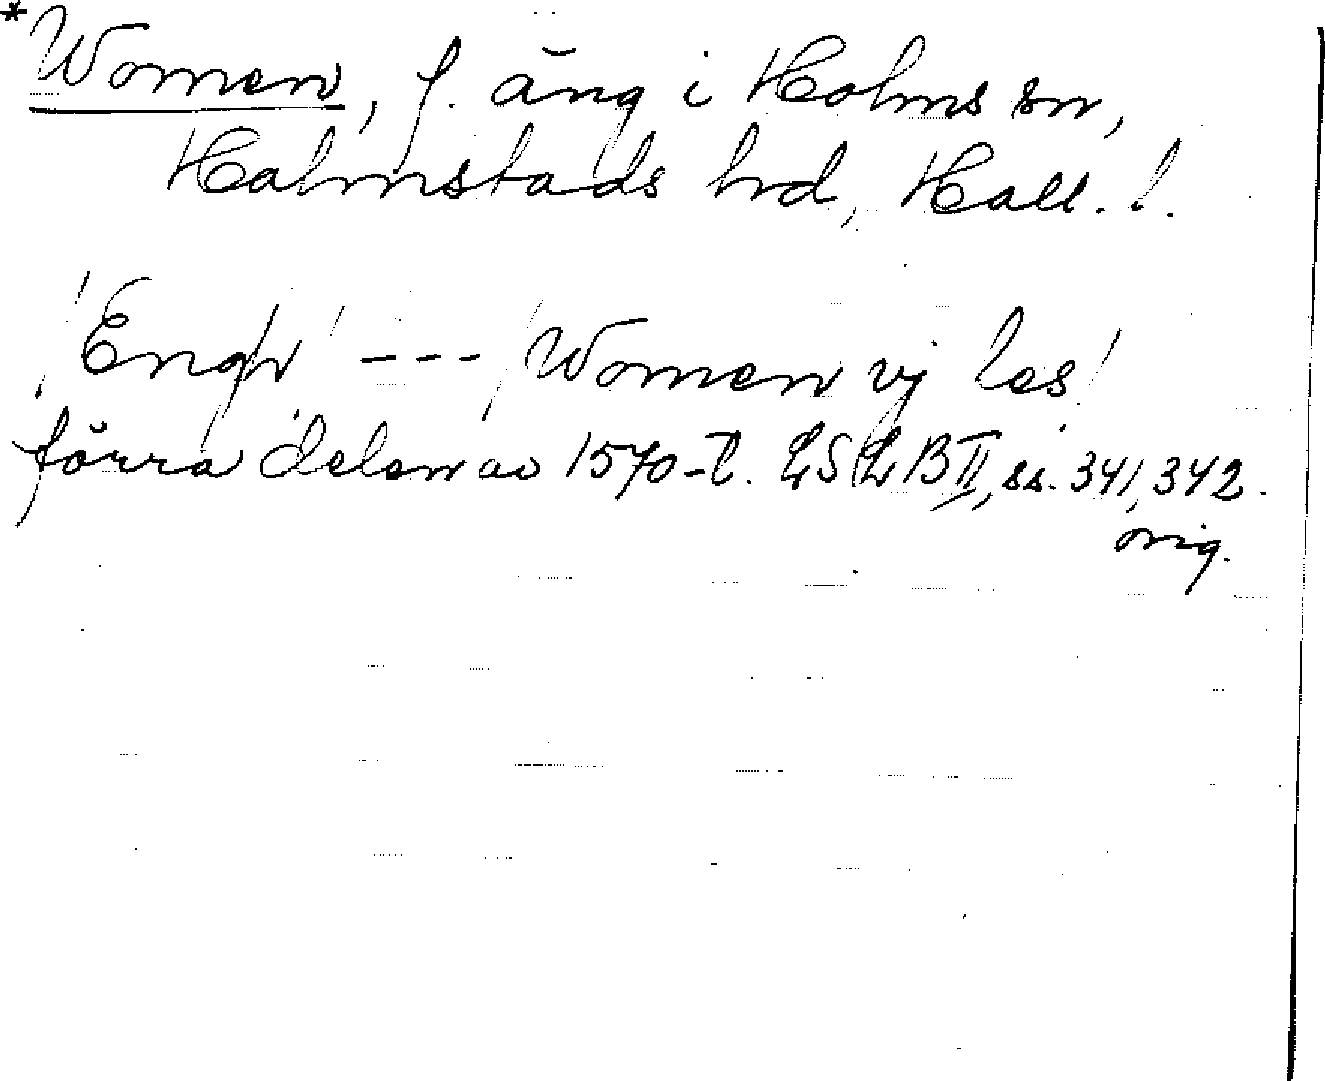 *Women, f. äng i Holms sn,
Halmstads hd, Hall. l.
"Engh" --- "Women vj les"
förra delen av 1570-t. LSLB II, ss. 341, 342.
orig.